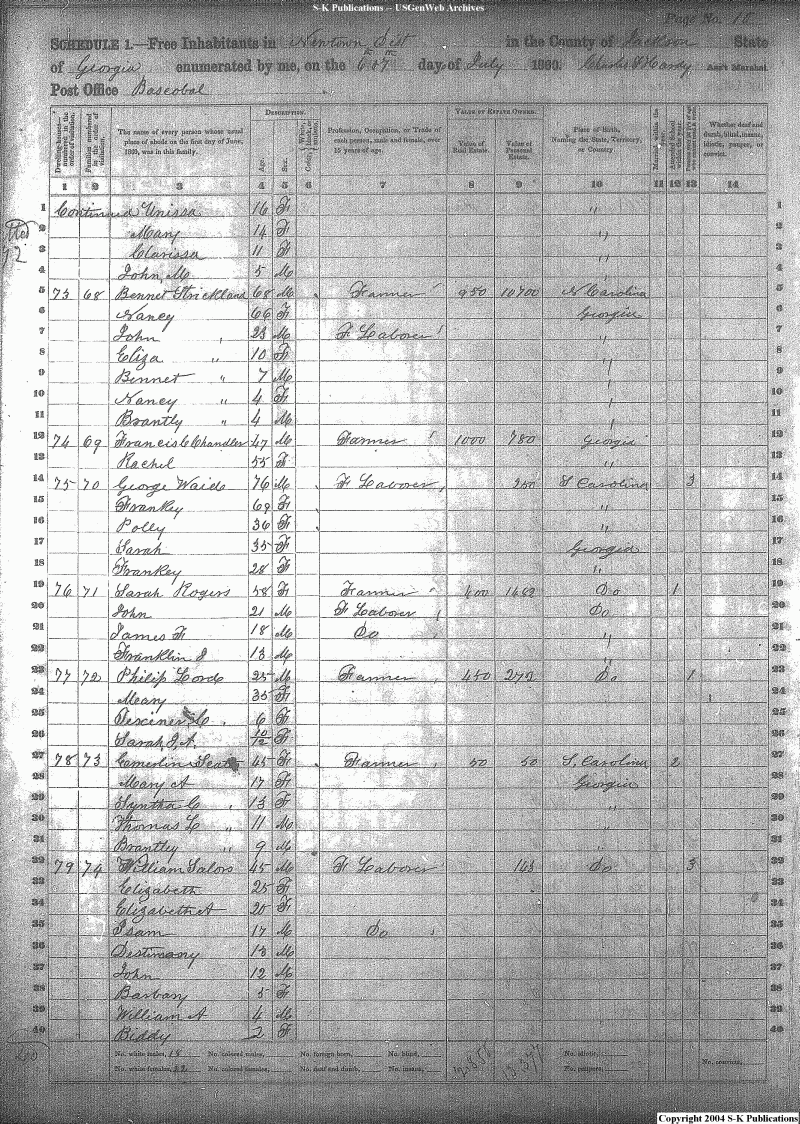 S-K Publications -- USGenWeb Archives
Page No. 10
SCHEDULE 1.—Free Inhabitants in Newtown Dist in the County of Jackson State
of Georgia enumerated by me, on the day of July 1860. Charles Hardy Ass't Marshal.
Post Office
DESCRIPTION. VALUE OF ESTATE OWNED.
Dwelling-houses—numbered in the order of visitation.
Families numbered in the order of visitation.
The name of every person whose usual place of abode on the first day of June, 1860, was in this family.
Age. Sex.
Profession, Occupation, or Trade of each person, male and female, over 15 years of age.
Value of Real Estate. Value of Personal Estate.
Place of Birth, Naming the State, Territory, or Country.
Married within the year.
Whether deaf and dumb, blind, insane, idiotic, pauper, or convict.
1 2 3 4 5 6 7 8 9 10 11 12 13 14
1 Continued Unissa 16 F " 1
2 Mary 14 F " 2
3 Clarissa 11 F " 3
4 John M 5 M " 4
5 73 68 Bennet Strickland 68 M Farmer 950 10700 N Carolina 5
6 Nancy 66 F Georgia 6
7 John 23 M F Laborer " 7
8 Eliza " 10 F " 8
9 Bennet " 7 M " 9
10 Nancy " 4 F " 10
11 Brantly " 4 M " 11
12 74 69 Francis C Chandler 47 M Farmer 1000 780 Georgia 12
13 Rachel 55 F " 13
14 75 70 George Waid 76 M F Laborer 250 S Carolina 3 14
15 Frankey 69 F " 15
16 Polly 36 F " 16
17 Sarah 35 F Georgia 17
18 Frankey 28 F " 18
19 76 71 Sarah Rogers 58 F Farmer 400 Do 1 19
20 John 21 M F Laborer Do 20
21 James F 18 M Do " 21
22 Franklin J 13 M " 22
23 77 72 Philip Lord 25 M Farmer 450 272 Do 1 23
24 Mary 35 F 24
25 6 F 25
26 Sarah J. A. 10/12 F 26
27 78 73 45 F Farmer 50 50 S. Carolina 2 27
28 Mary A 17 F Georgia 28
29 Syntha C " 13 F " 29
30 Thomas L " 11 M " 30
31 Brantley " 9 M " 31
32 79 74 William Salors 45 M F Laborer 143 Do 3 32
33 Elizabeth 25 F 33
34 Elizabeth A 20 F 34
35 Isam 17 M Do 35
36 Destimony 13 M 36
37 John 12 M 37
38 Barbary 5 F 38
39 William A 4 M 39
40 Biddy 2 F 40
No. white males, 18 No. colored males, No. foreign born, No. blind, No. idiotic,
No. white females, 22 No. colored females, No. deaf and dumb, No. insane, No. paupers, No. convicts,
Copyright 2004 S-K Publications